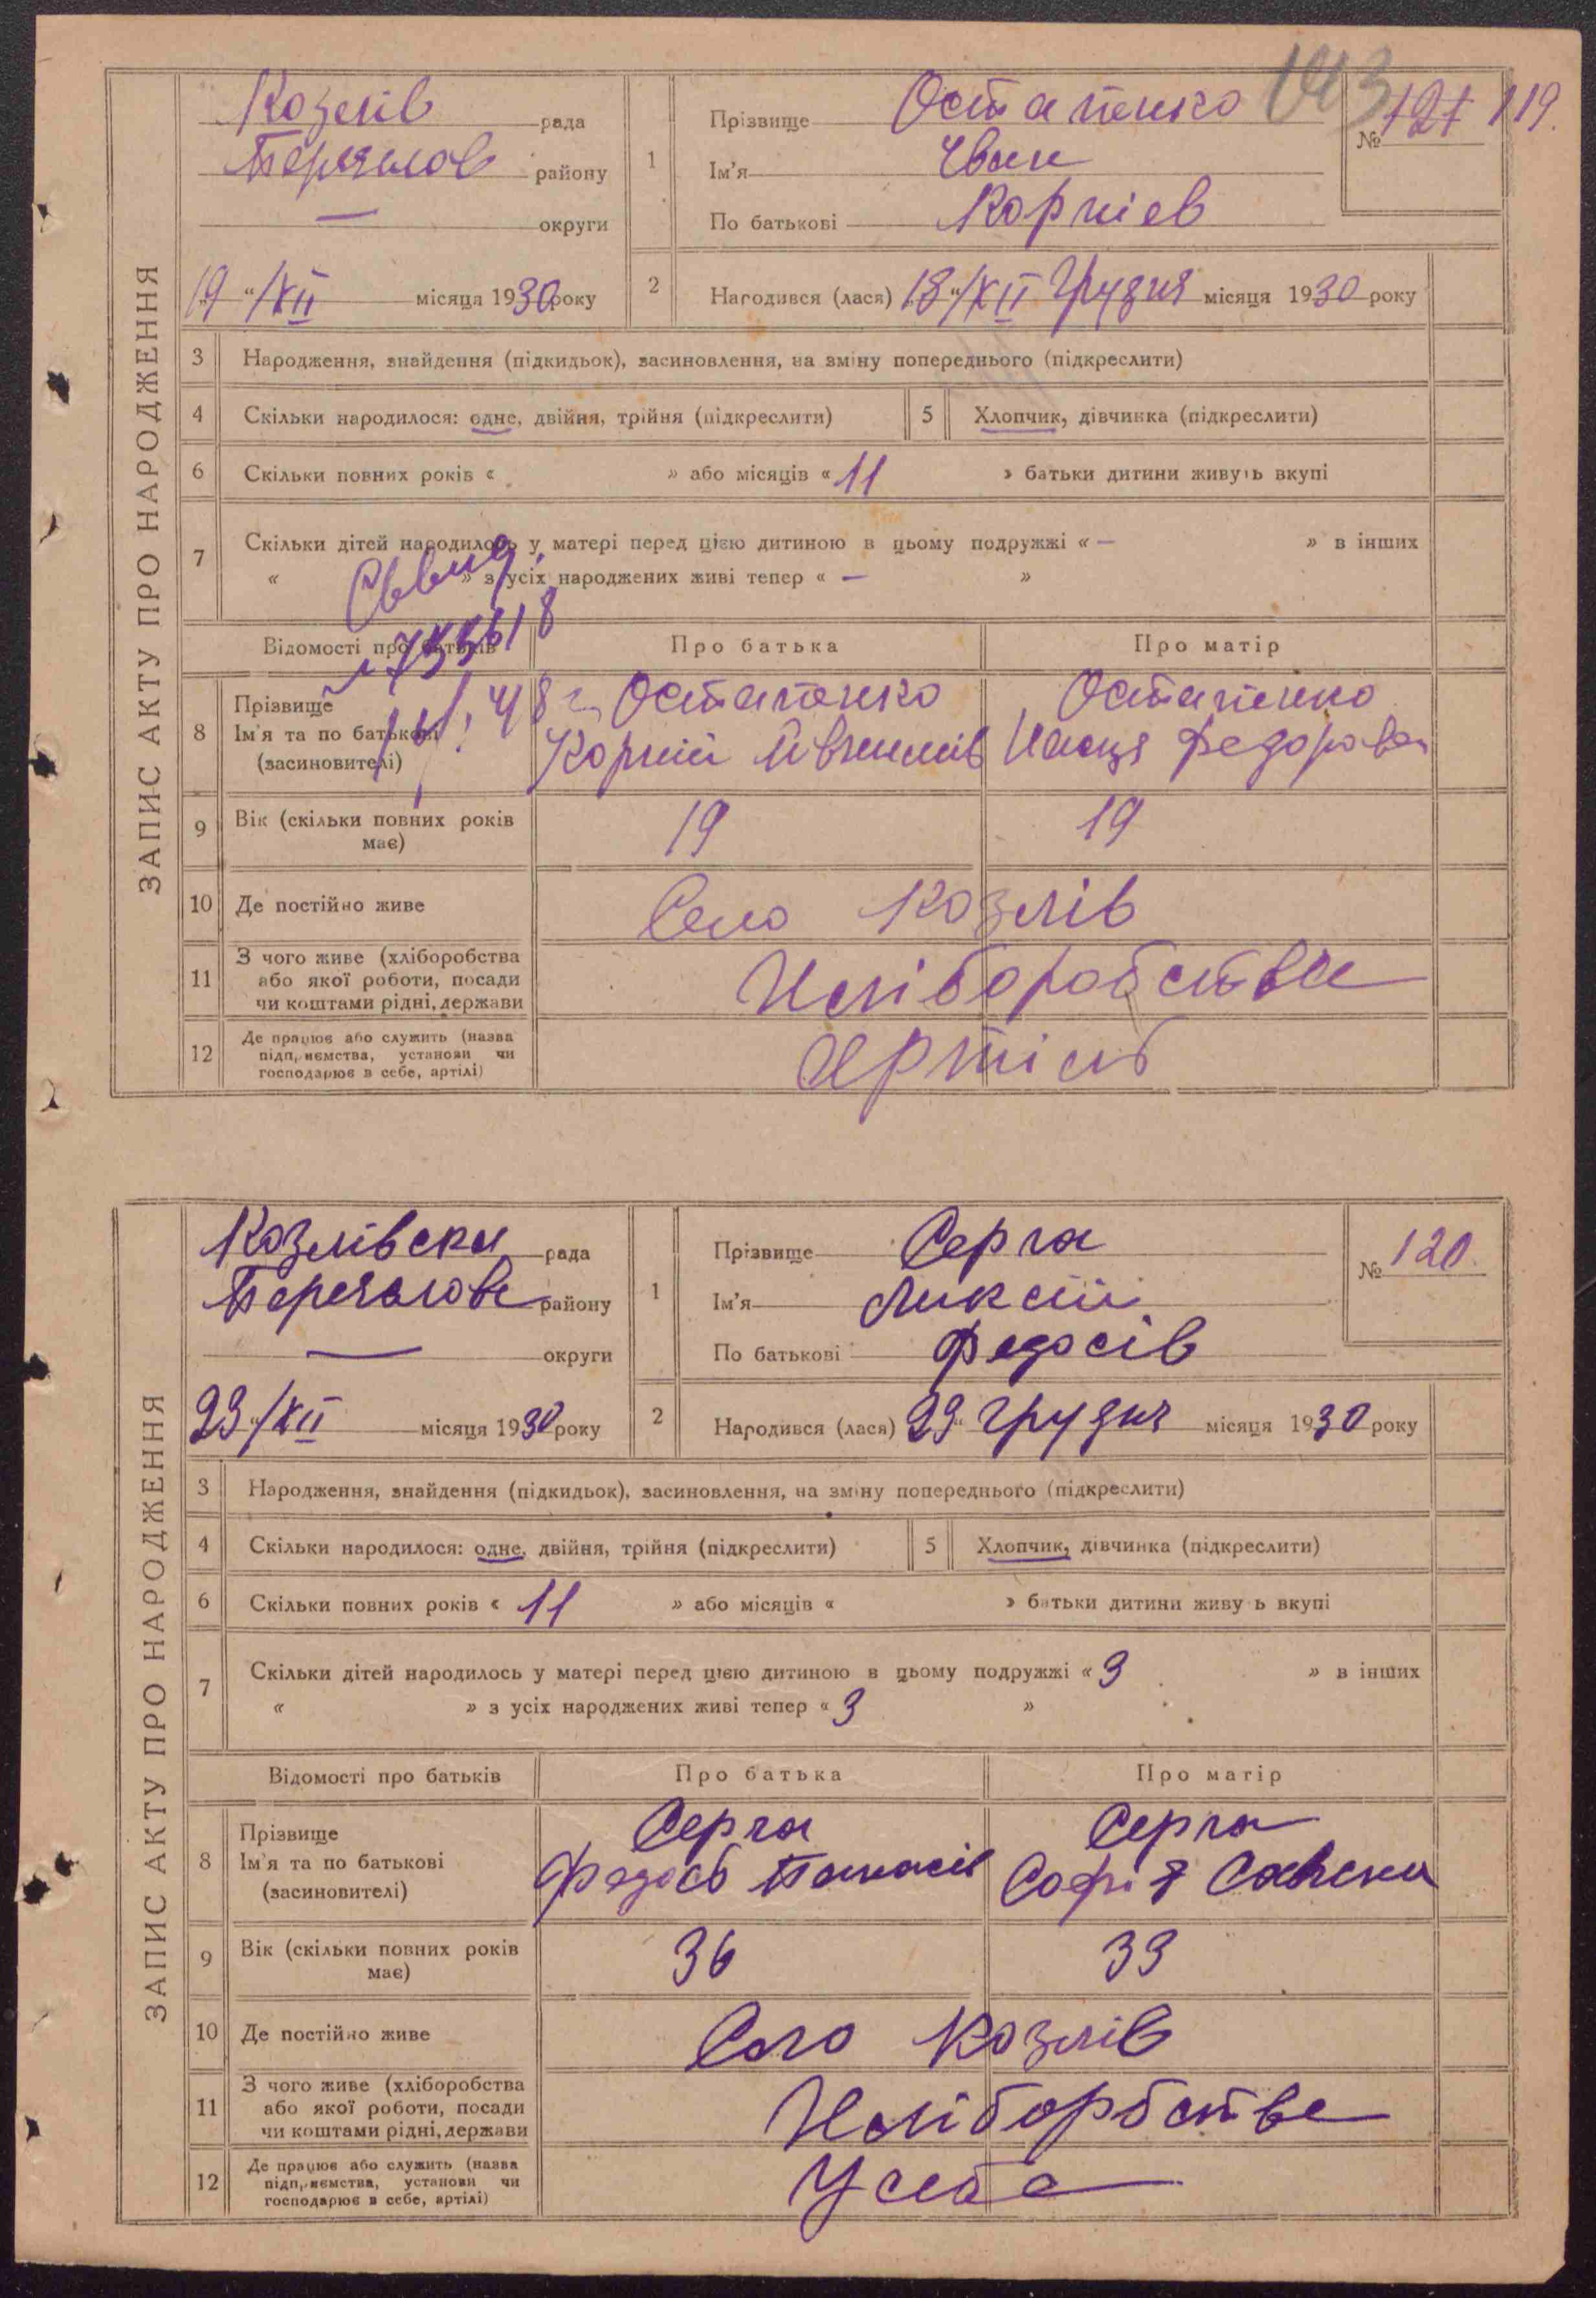 ЗАПИС АКТУ ПРО НАРОДЖЕННЯ
Козлів рада
Переяслов району
— округи
19 "/XII місяця 1930 року
1
Прізвище Остапенко
Ім'я Іван
По батькові Корнієв
143
№ 121 119.
2 Народився (лася) 18"/XII Грудня місяця 1930 року
3 Народження, знайдення (підкидьок), засиновлення, на зміну попереднього (підкреслити)
4 Скільки народилося: одне, двійня, трійня (підкреслити) 5 Хлопчик, дівчинка (підкреслити)
6 Скільки повних років « » або місяців « 11 » батьки дитини живуть вкупі
7 Скільки дітей народилось у матері перед цією дитиною в цьому подружжі « — » в інших
« » з усіх народжених живі тепер « — »
Відомості про батьків Про батька Про матір
8 Прізвище Остапенко Остапенко
Ім'я та по батькові Корній Федоровна
(засиновителі)
9 Вік (скільки повних років має) 19 19
10 Де постійно живе Село Козлів
11 З чого живе (хліборобства або якої роботи, посади чи коштами рідні, держави Хліборобства
12 Де працює або служить (назва підприємства, установи чи господарює в себе, артілі) Артіль
ЗАПИС АКТУ ПРО НАРОДЖЕННЯ
Козлівска рада
Переяслове району
— округи
23"/XII місяця 1930 року
1
Прізвище Серга
Ім'я Ликсій
По батькові Федосів
№ 120.
2 Народився (лася) 23" грудня місяця 1930 року
3 Народження, знайдення (підкидьок), засиновлення, на зміну попереднього (підкреслити)
4 Скільки народилося: одне, двійня, трійня (підкреслити) 5 Хлопчик, дівчинка (підкреслити)
6 Скільки повних років « 11 » або місяців « » батьки дитини живуть вкупі
7 Скільки дітей народилось у матері перед цією дитиною в цьому подружжі « 3 » в інших
« » з усіх народжених живі тепер « 3 »
Відомості про батьків Про батька Про матір
8 Прізвище Серга Серга
Ім'я та по батькові Федось Панасів Софія
(засиновителі)
9 Вік (скільки повних років має) 36 33
10 Де постійно живе Село Козлів
11 З чого живе (хліборобства або якої роботи, посади чи коштами рідні, держави Хліборбстве
12 Де працює або служить (назва підприємства, установи чи господарює в себе, артілі) У себе